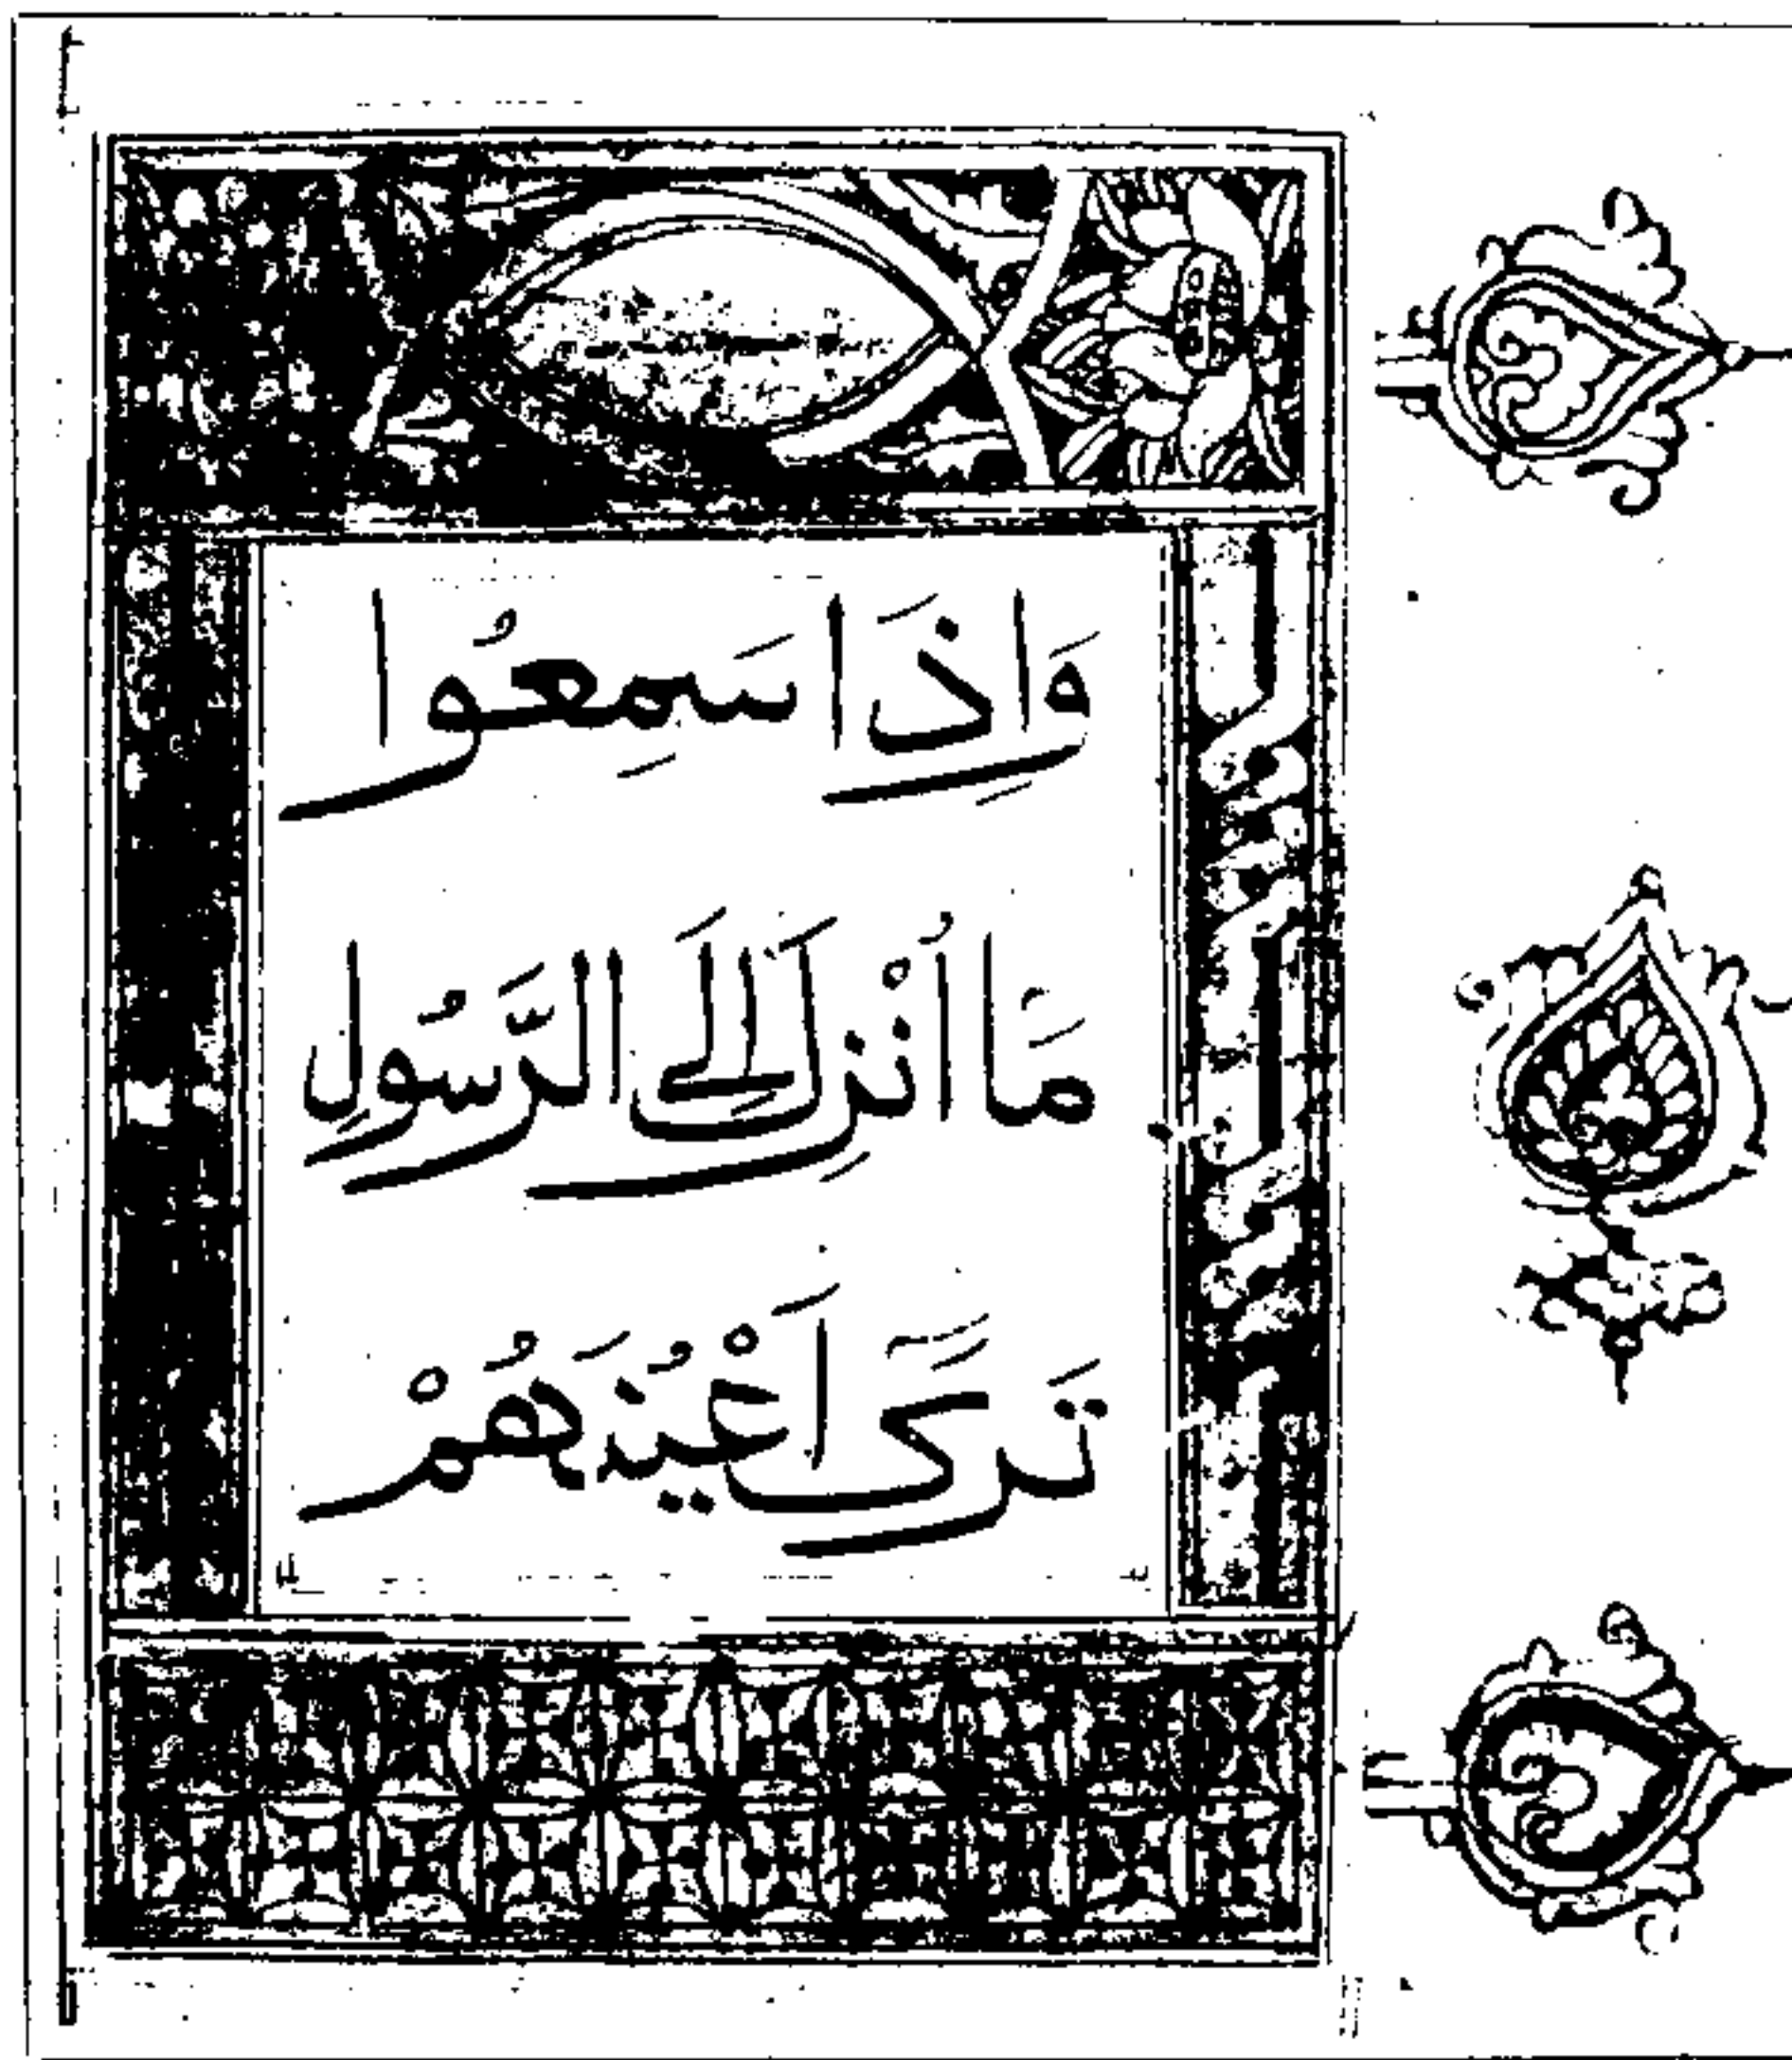 وَاِذَا سَمِعُوا
مَا اُنْزِلَ اِلَى الرَّسُولِ
تَرَىٰ اَعْيُنَهُمْ